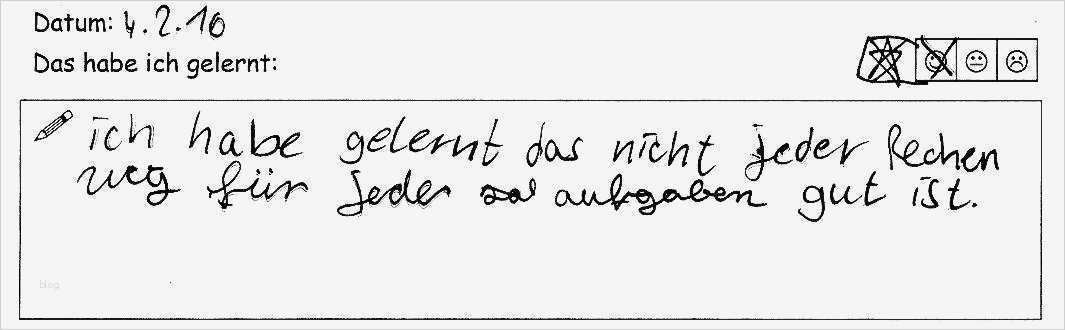 Datum: 4.2.10
Das habe ich gelernt:
ich habe gelernt das nicht jeder Rechen
weg für jeder aufgaben gut ist.
blog